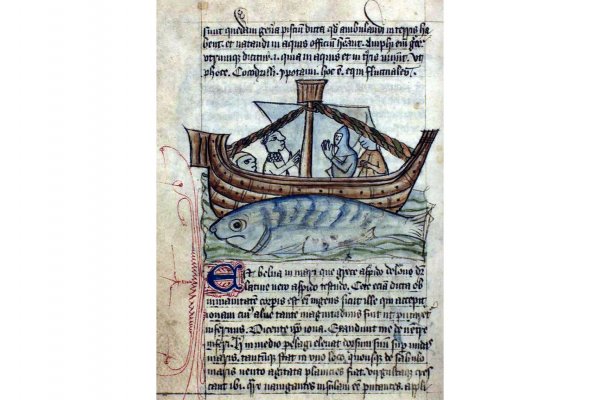 sunt quedam gena pisciũ dicta qđ ambulandi in terris ha
bent. et natandi in aquis officiũ Amphi em̃ grec
dicit̃ .i. quia in aquis et in t̃ris vt
phoce. Cocodrilli. ypotami. hoc ẽ. equi fluctuales.
Est belua in mari que grece aspido delone dr̃
latine uero aspido testudo. Cete eciã dicta ob
inmanitatem corp̃is est em̃ ingens sicut ille qui accepit
ionam cui᷒ alu᷒ tante magnitudinis fuit ut putaret̃
infernus. Dicente ip̃o iona. Exaudiuit me de uentre
inferi. in medio pelagi eleuat dorsum suũ sup̃ undas
maris. tantũque stat in uno loco. quousque de sabulo
maris vento agitata planicies fiat. virgultaque cres
cant ibi. nauigantes insulam eẽ putantes. appli